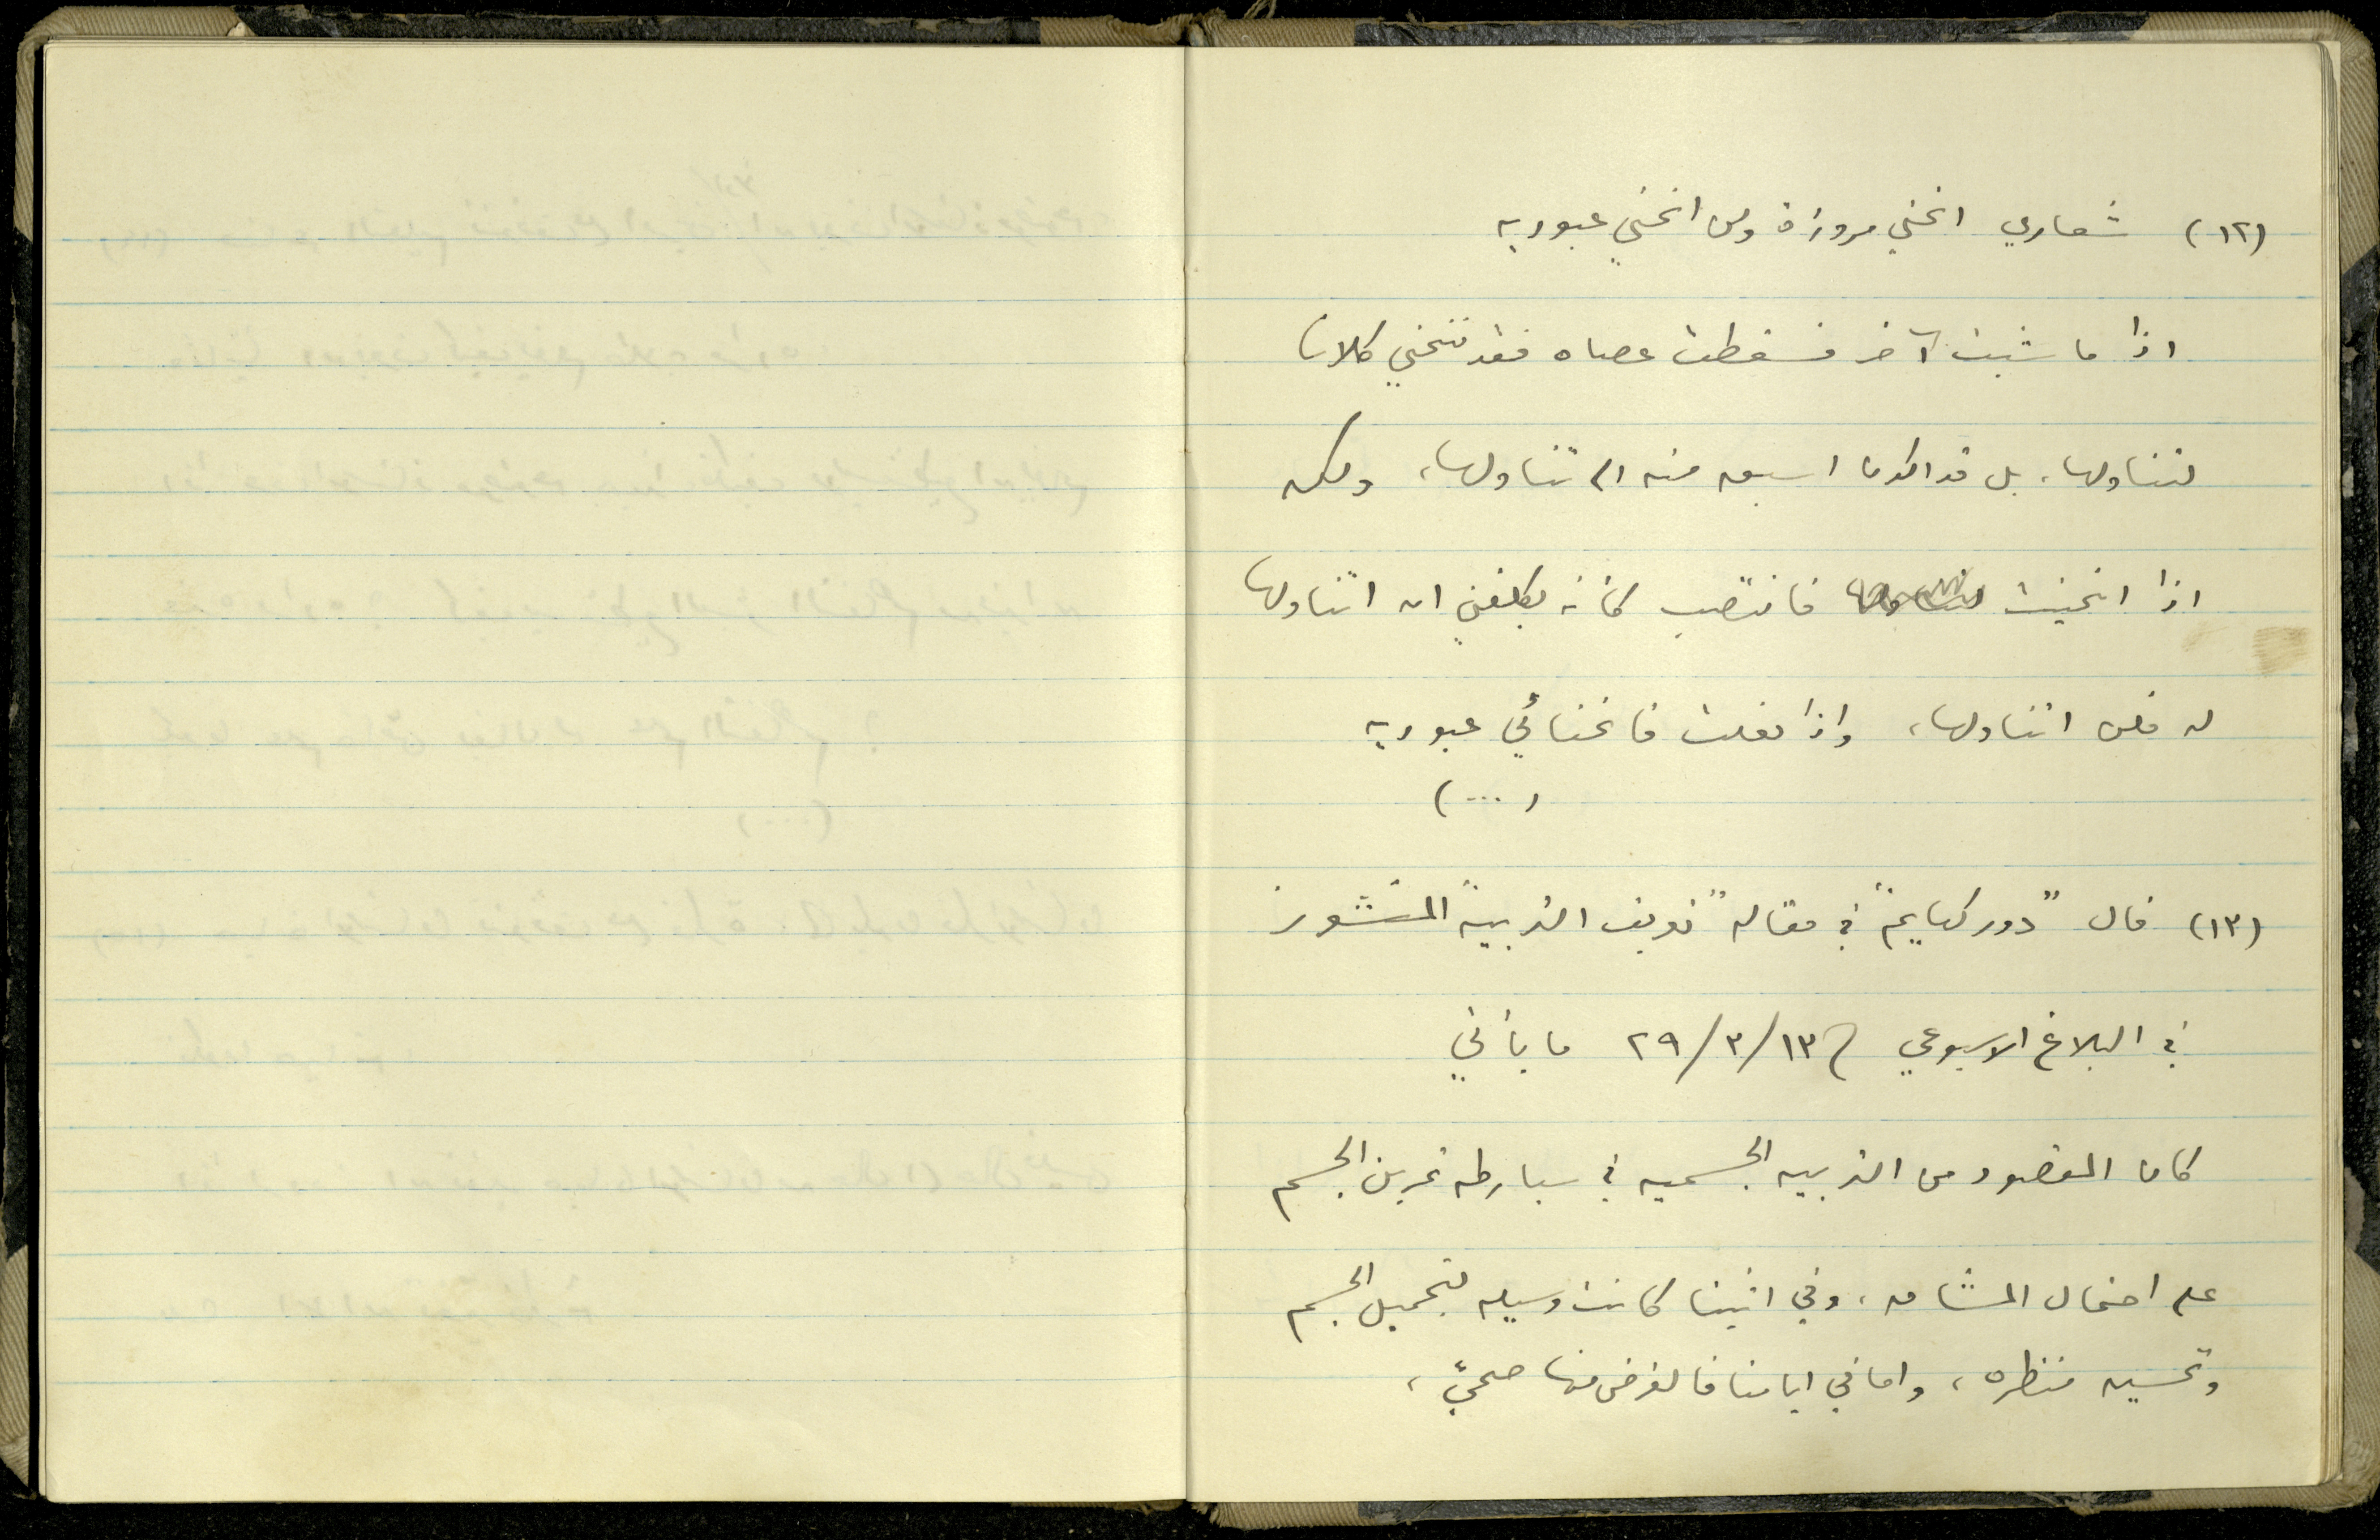 (١٢) شعاري انحني مروءة ولن انحني عبوديه
اذا ما شيت آخر فسقطت عصاه فقد ننحني كلانا
لتناولها، بل قد اكون اسبق منه الى تناولها، ولكن
اذا انحنيت فانتصب كأنه يكلفني ان اتناولها
له فلن اتناولها، واذا فعلت فانحنائي عبوديه
(...)
(١٣) قال "دوركهايم" في مقاله "تعريف التربية" المنشور
في البلاغ الاسبوعي ١٣/٣/٢٩ ما يأتي
كان المقصود من التربيه الجسميه في سبارطه تمرين الجسم
على احتمال المشاق، وفي اثينا كانت وسيله لتجميل الجسم
وتحسين منظره، واما في ايامنا فالغرض منها صحيّ،